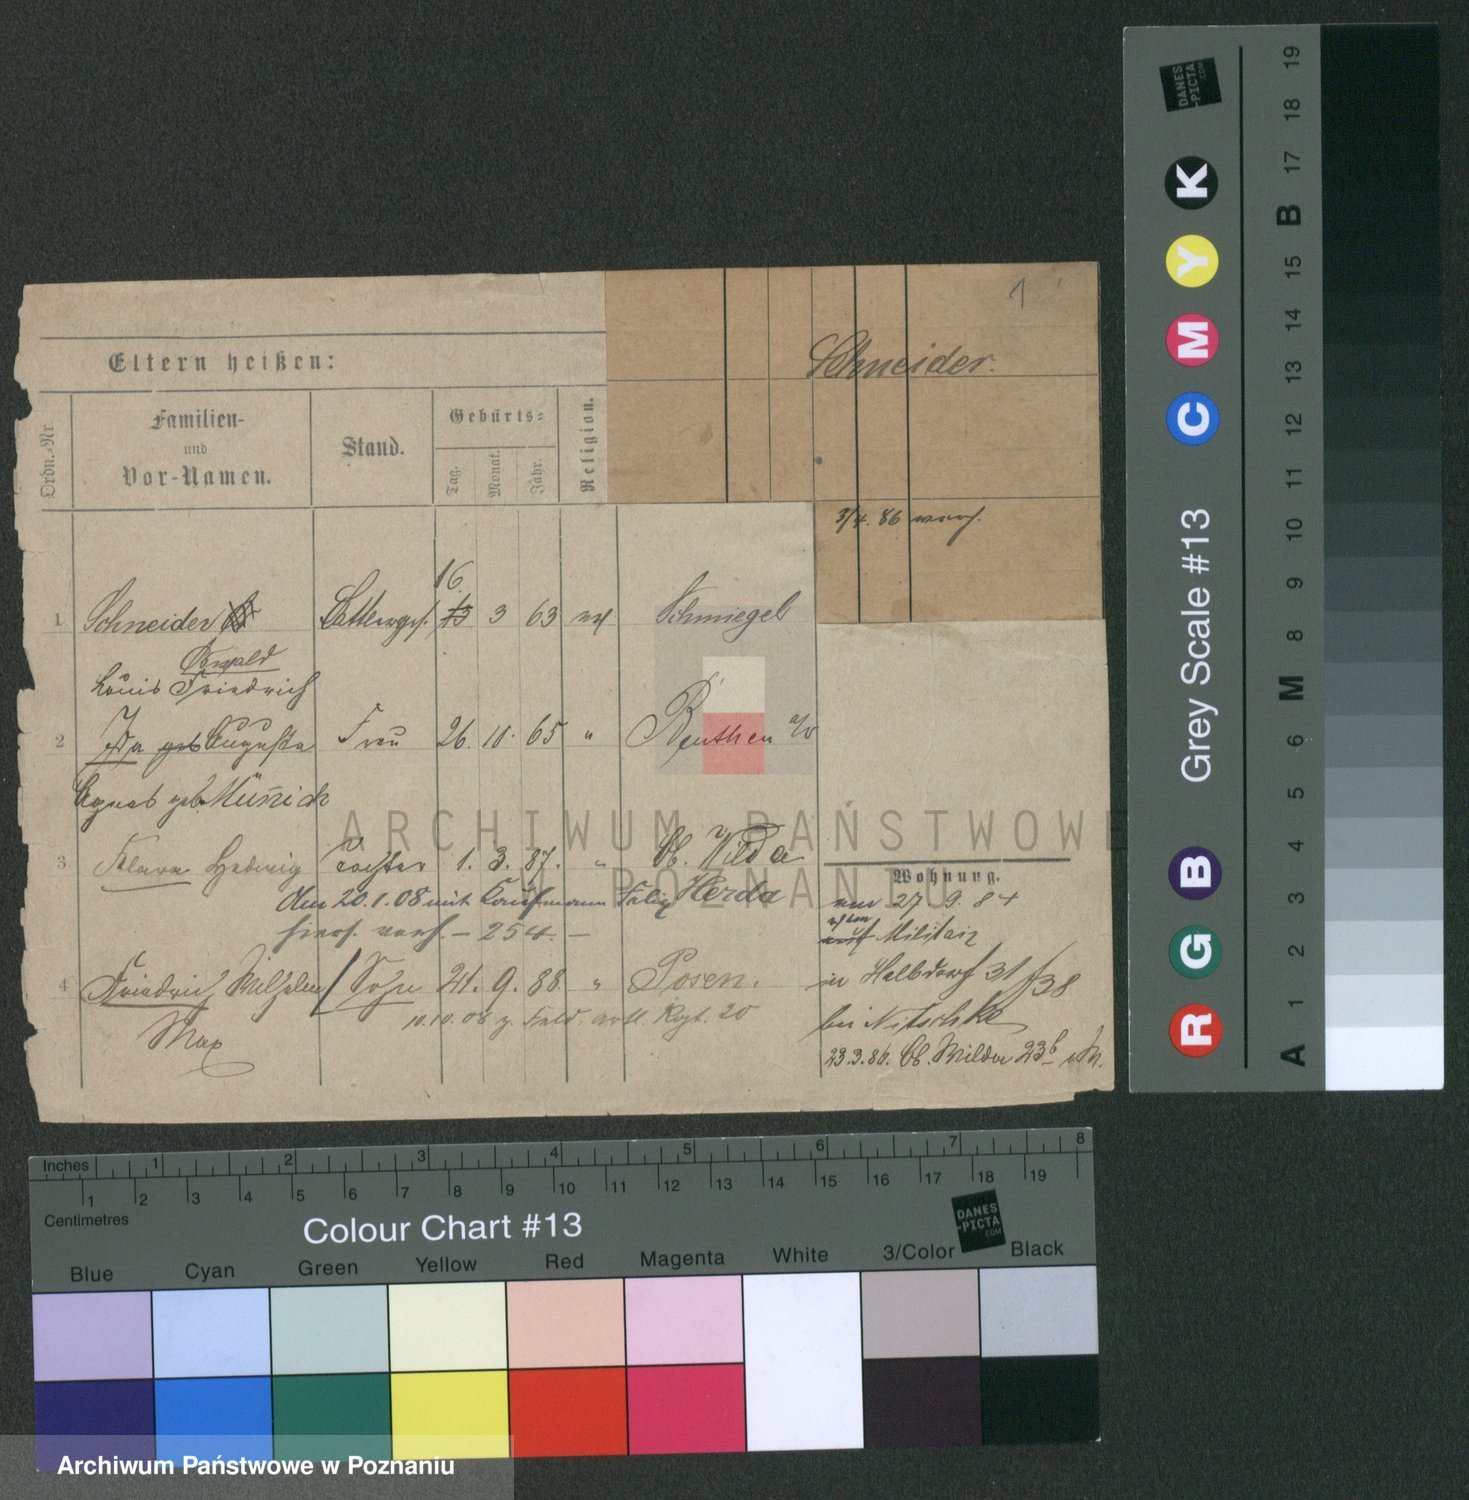 1
Schneider.
Eltern heißen:
Ordn.-Nr.
Familien-
und
Vor-Namen.
Stand.
Geburts-
Tag.
Monat.
Jahr.
Religion.
3/4. 86
16.
1 Schneider 3 63 Schmiegel
Oswald
Louis Friedrich
2 Ida geb Auguste Frau 26. 10. 65 " Beuthen a/O
Agnes geb. Münich
3 Klara Hedwig Tochter 1. 3. 87. " Ob. Wilda
Am 20.1.08 mit Kaufmann Felix Herda
hiers. verh. - 254. -
4 Friedrich Wilhelm Sohn 21. 9. 88. " Posen.
Max
10.10.08 z. Feld. artl. Regt. 20
Wohnung.
27 9. 84
Militair
in Halbdorf 31/38
bei Nitschke
23.3.86. Ob. Wilda 23b
ARCHIWUM PAŃSTWOWE
W POZNANIU
Inches 1 2 3 4 5 6 7 8
1 2 3 4 5 6 7 8 9 10 11 12 13 14 15 16 17 18 19
Centimetres
Colour Chart #13
DANES
-PICTA
.COM
Blue Cyan Green Yellow Red Magenta White 3/Color Black
Grey Scale #13
R G B C M Y K
DANES
-PICTA
.COM
A 1 2 3 4 5 6 M 8 9 10 11 12 13 14 15 B 17 18 19
Archiwum Państwowe w Poznaniu